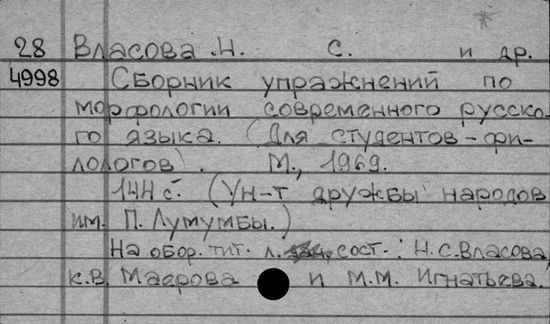 28 Власова Н. С. и др.
4998 Сборник упражнений по
морфологии современного русско-
го языка. (Для студентов-фи-
лологов). М., 1969.
144 с. (Ун-т дружбы народов
им. П. Лумумбы.)
На обор. тит. л. сост.: Н.С.Власова,
К.В. Маерова и М.М. Игнатьева.